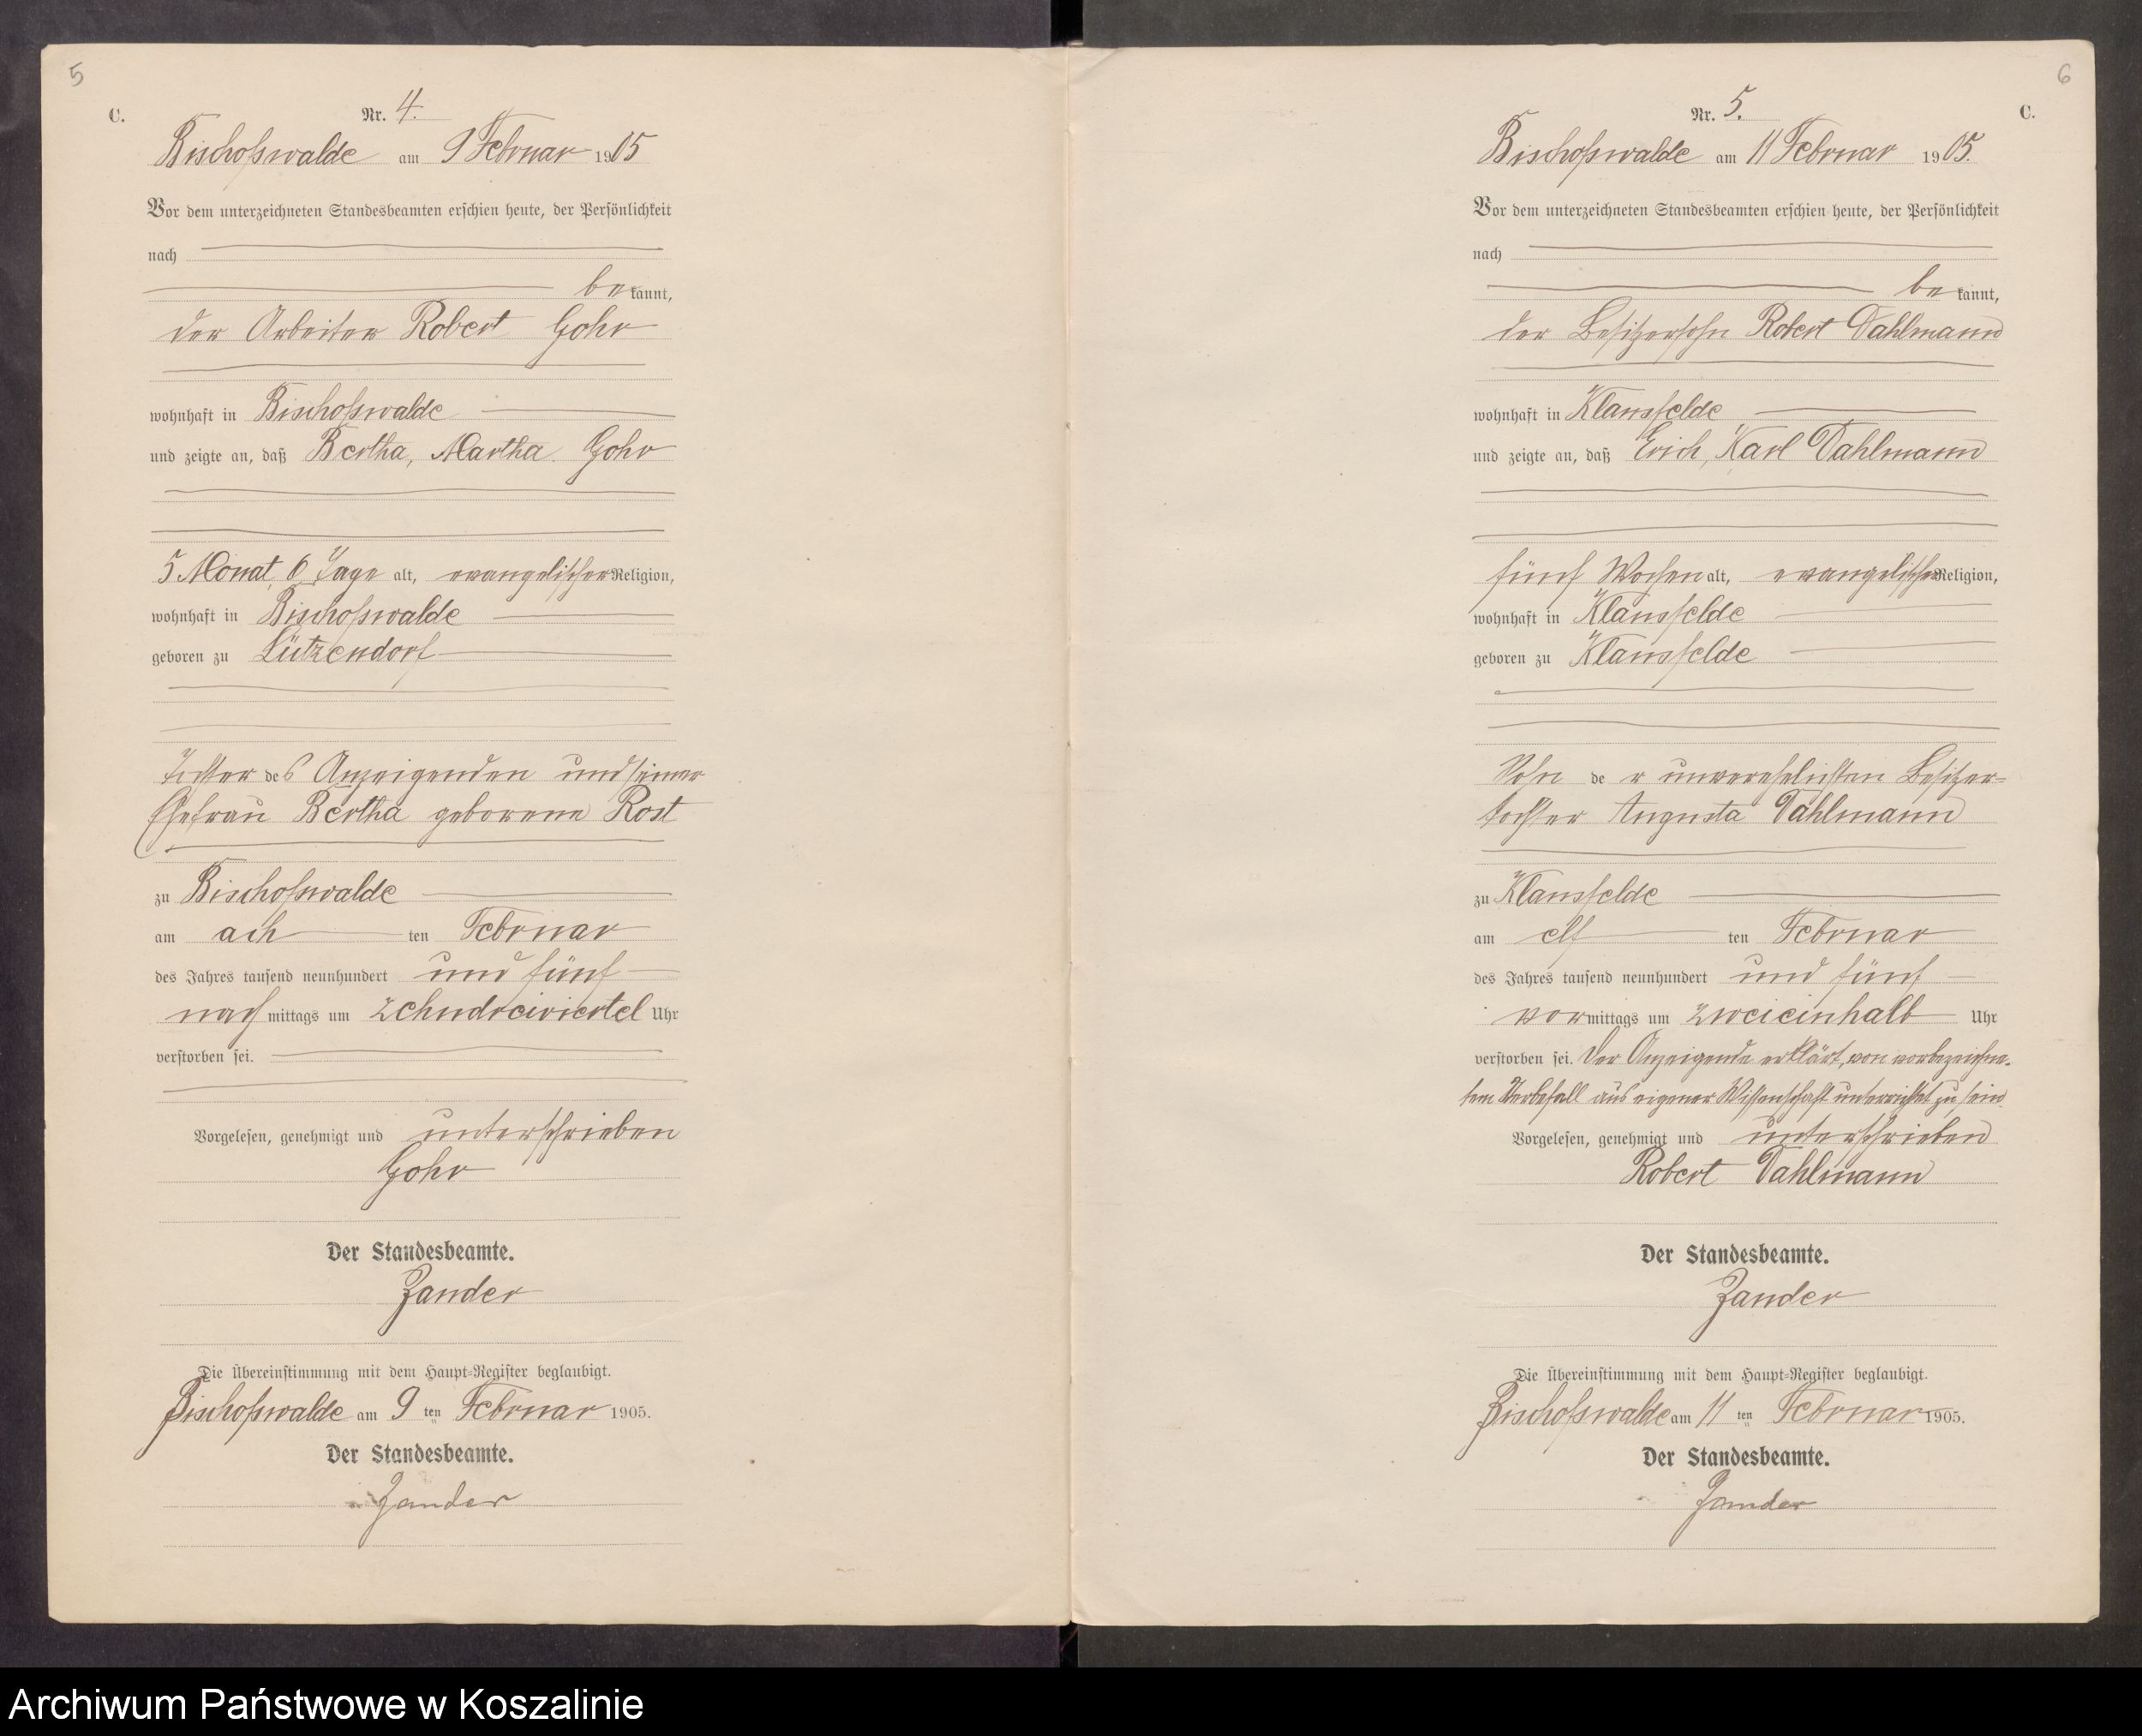 5
C.
Nr. 4.
Bischofswalde am 9 Februar 1905
Vor dem unterzeichneten Standesbeamten erschien heute, der Persönlichkeit
nach
bekannt,
der Arbeiter Robert Gohr
wohnhaft in Bischofswalde
und zeigte an, daß Bertha, Martha Gohr
5 Monat, 6 Tage alt, evangelischer Religion,
wohnhaft in Bischofswalde
geboren zu Lützendorf
Tochter des Anzeigenden und seiner
Ehefrau Bertha geborene Rost
zu Bischofswalde
am ach ten Februar
des Jahres tausend neunhundert und fünf
nach mittags um zehndreiviertel Uhr
verstorben sei.
Vorgelesen, genehmigt und unterschrieben
Gohr
Der Standesbeamte.
Zander
Die Übereinstimmung mit dem Haupt-Register beglaubigt.
Bischofswalde am 9 ten Februar 1905.
Der Standesbeamte.
Zander
6
C.
Nr. 5.
Bischofswalde am 11 Februar 1905.
Vor dem unterzeichneten Standesbeamten erschien heute, der Persönlichkeit
nach
bekannt,
der Besitzersohn Robert Dahlmann
wohnhaft in Klausfelde
und zeigte an, daß Erich, Karl Dahlmann
fünf Wochen alt, evangelischer Religion,
wohnhaft in Klausfelde
geboren zu Klausfelde
Sohn de r unverehelichten Besitzer=
tochter Augusta Dahlmann
zu Klausfelde
am elf ten Februar
des Jahres tausend neunhundert und fünf
vor mittags um zweieinhalb Uhr
verstorben sei. Der Anzeigende erklärt, von vorbezeichne-
tem Sterbefall aus eigener Wissenschaft unterrichtet zu sein.
Vorgelesen, genehmigt und unterschrieben
Robert Dahlmann
Der Standesbeamte.
Zander
Die Übereinstimmung mit dem Haupt-Register beglaubigt.
Bischofswalde am 11 ten Februar 1905.
Der Standesbeamte.
Zander
Archiwum Państwowe w Koszalinie